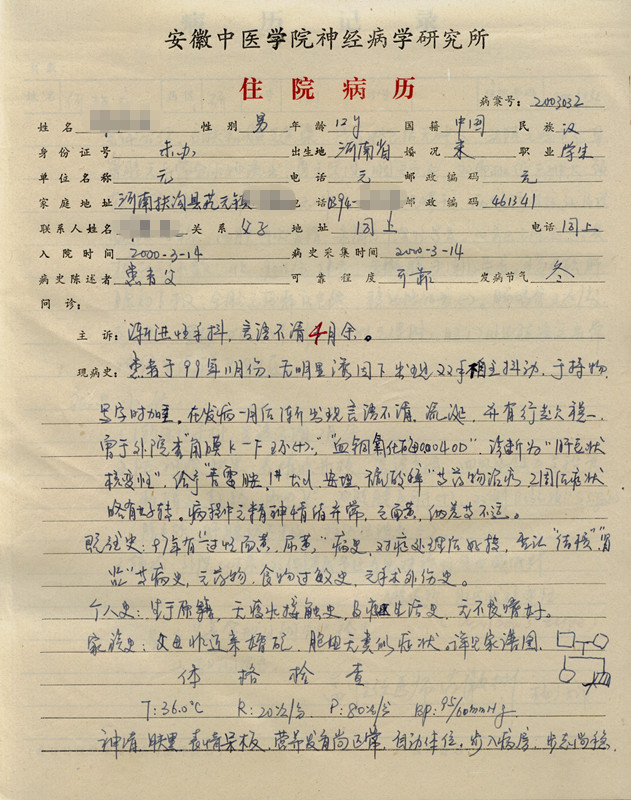 安徽中医学院神经病学研究所
住院病历
病案号：2003032
姓名 性别 男 年龄 12岁 国籍 中国 民族 汉
身份证号 未办 出生地 河南省 婚况 未 职业 学生
单位名称 无 电话 无 邮政编码 无
家庭地址 河南扶沟县 电话 0394- 邮政编码 461341
联系人姓名 关系 父子 地址 同上 电话 同上
入院时间 2000-3-14 病史采集时间 2000-3-14
病史陈述者 患者父 可靠程度 可靠 发病节气 冬
问诊：
主诉：渐进性手抖，言语不清4月余。
现病史：患者于99年11月份，无明显诱因下出现双手抖动，于持物
写字时加重，在发病一月后渐出现言语不清，流涎，并有行走欠稳，
曾于外院查"角膜K-F环(+)，"血铜氧化酶0.004OD"，诊断为"肝豆状
核变性"，给予"青霉胺，安坦，硫酸锌"等药物治疗，2周后症状
略有好转。病程中无精神情绪异常，无面黄，纳差等不适。
既往史：97年有"过性面黄，尿黄"病史，对症处理后好转，否认"结核"，"胃
炎"等病史，无药物，食物过敏史，无手术外伤史。
个人史：生于原籍，无疫水接触史，生活史，无不良嗜好。
家族史：父母非近亲婚配，胞姐无类似症状。详见家谱图。
体格检查
T：36.0℃ R：20次/分 P：80次/分 BP：95/60mmHg
神清，肤黑，表情呆板，营养发育尚正常，自动体位，步入病房，步态尚稳，